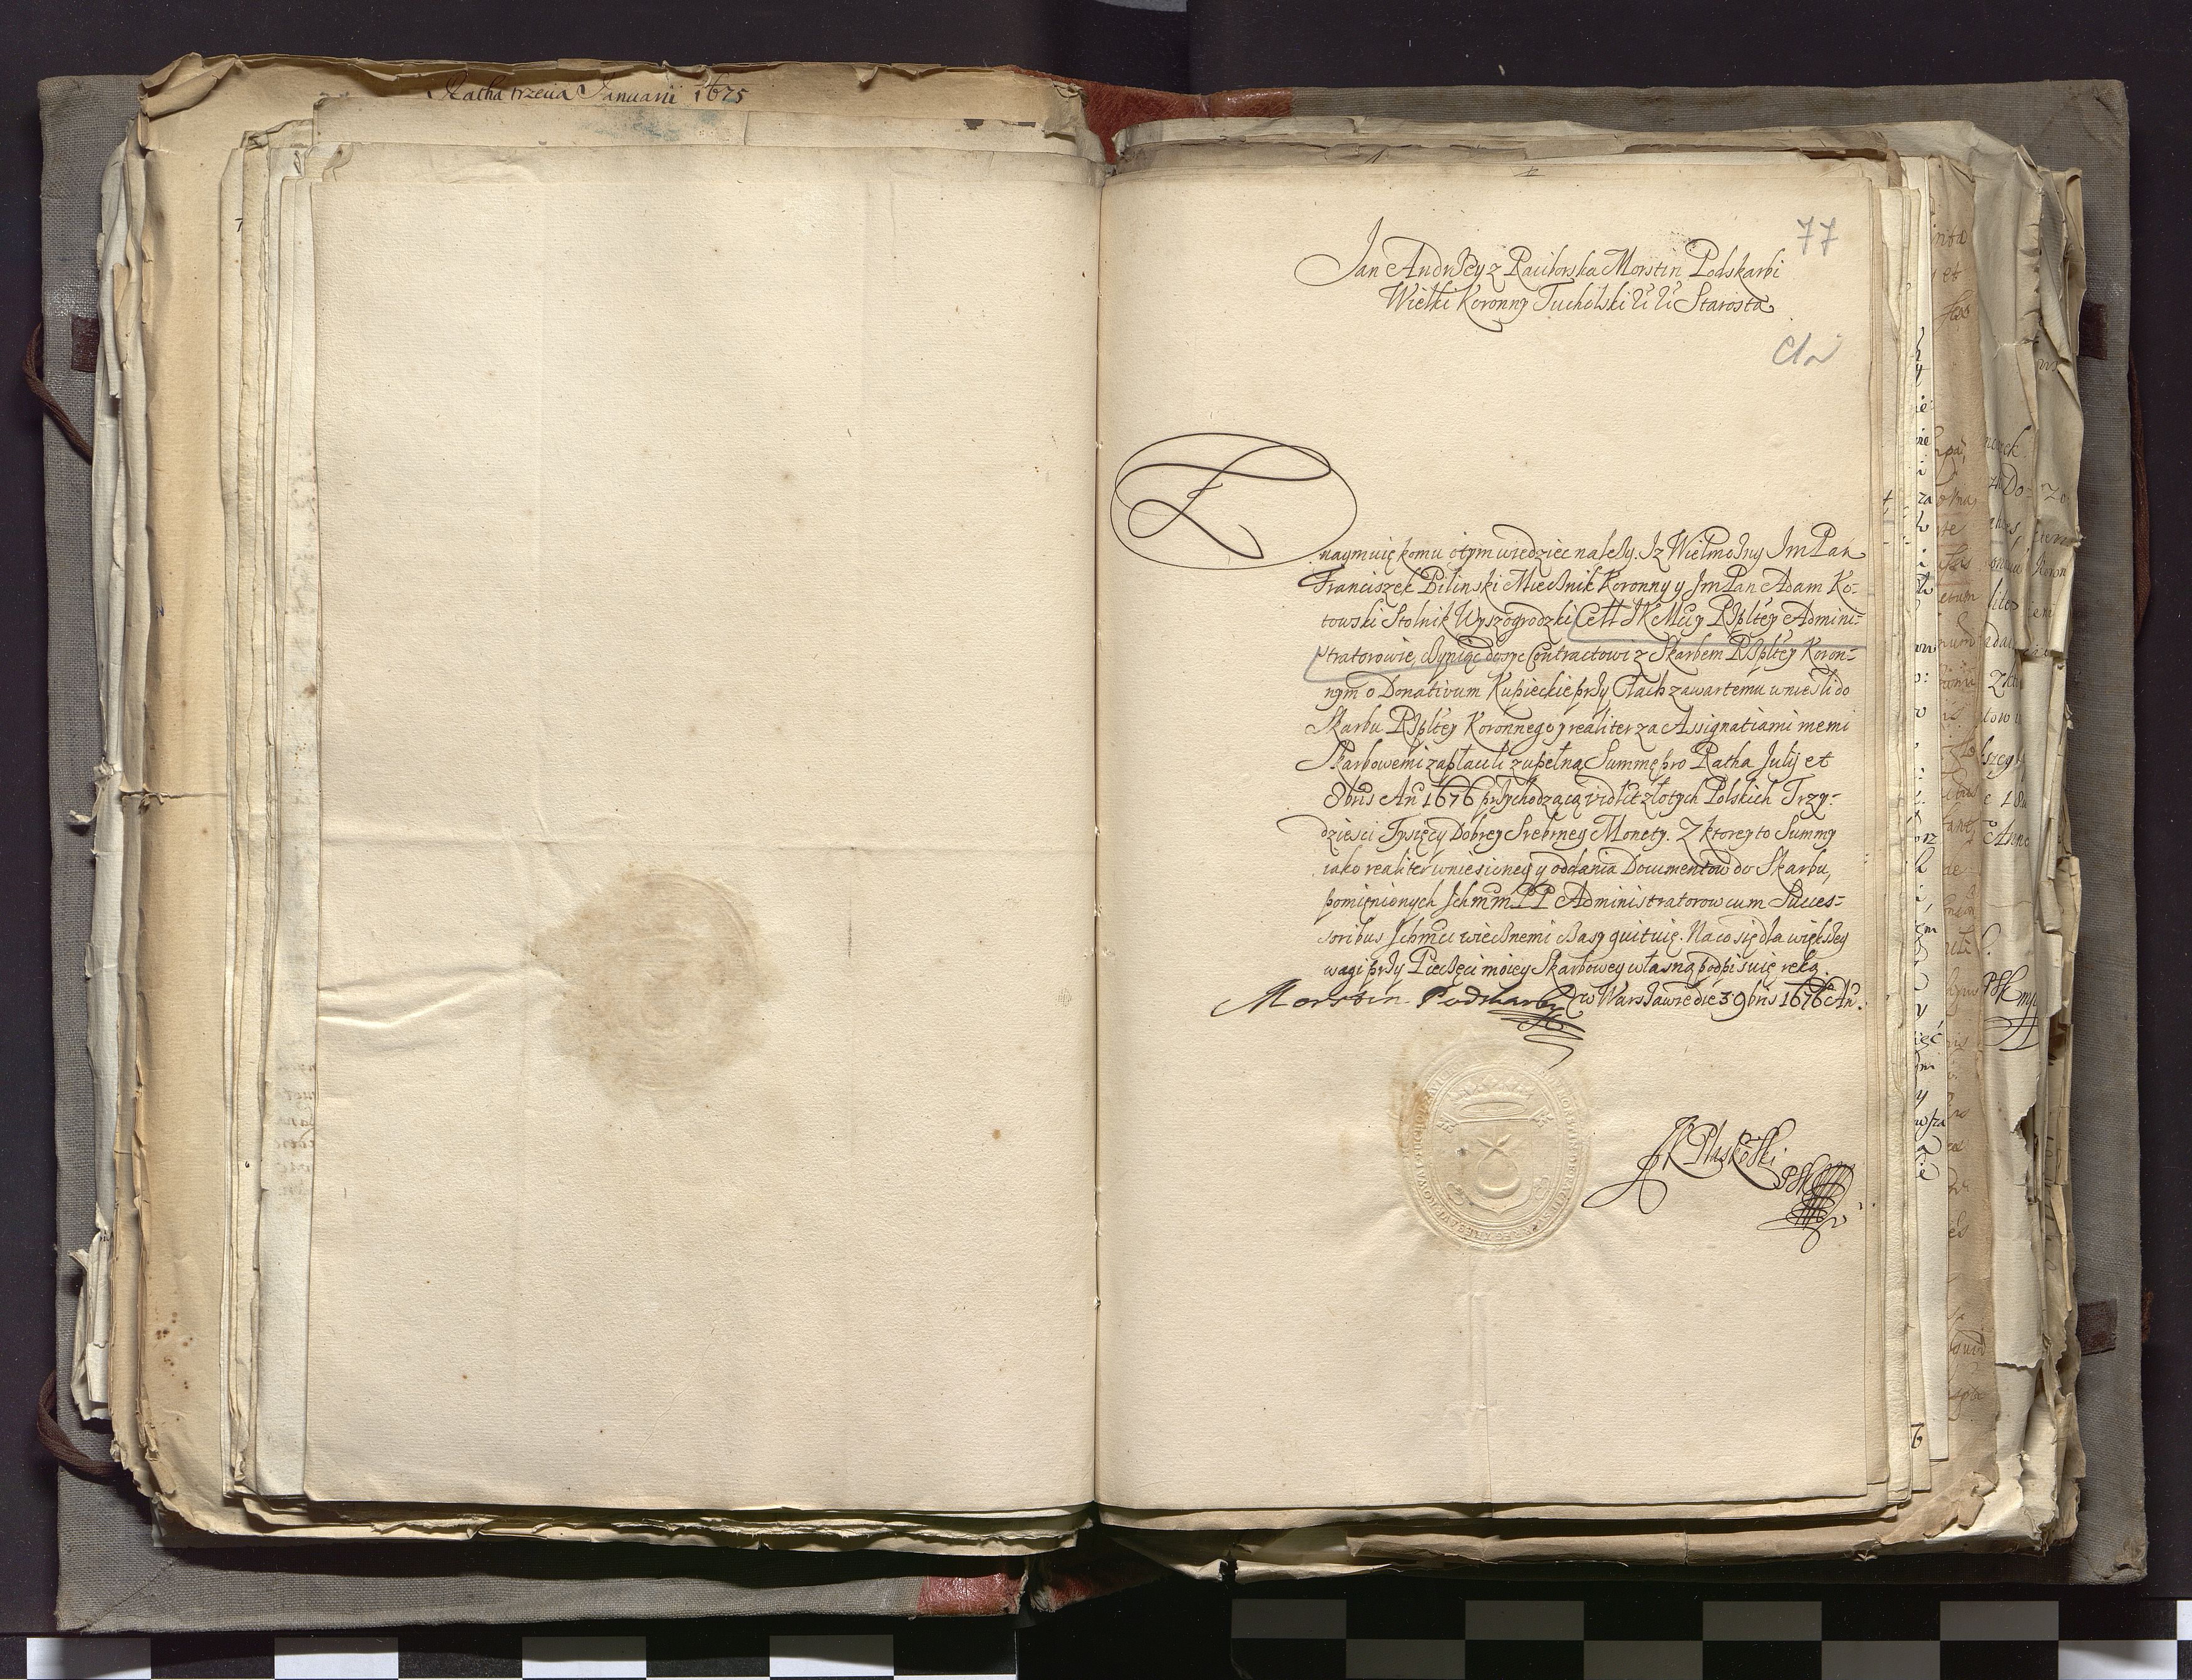 Ratha trzecia Januarii 1675
77
Jan Andrzey z Raciborska Morstin Podskarbi
Wielki Koronny Tucholski &c &c Starosta
Cła
Znaymuię komu otym wiedziec nalezy. Iz Wielmozny ImPan
Franciszek Bilinski Miecznik Koronny y ImPan Adam Ko-
towski Stolnik Wyszogrodzki Cełł JKMci y RPpltey Admini-
stratorowie, czyniąc dosyc Contractowi z Skarbem RPpltey Koron-
nym o Donativum Kupieckie przy Cłach zawartemu wniesli do
Skarbu RPpltey Koronnego y realiter za Assignatiami memi
Skarbowemi zapłacili zupełną Summę pro Ratha Julij et
8bris An 1676 przychodzącą vidlt złotych Polskich Trzy-
dziesci Tysięcy Dobrey Srebrney Monety. Z ktorey to Summy
iako realiter wniesioney y oddania Documentow do Skarbu,
pomienionych Ichmm PP Administratorow cum Succes-
soribus Ichmci wiecznemi czasy quituię. Na co się dla większey
wagi przy Pieczęci moiey Skarbowey własną podpisuię ręką.
Morstin Podskarby w Warszawie die 3 9bris 1676 An.